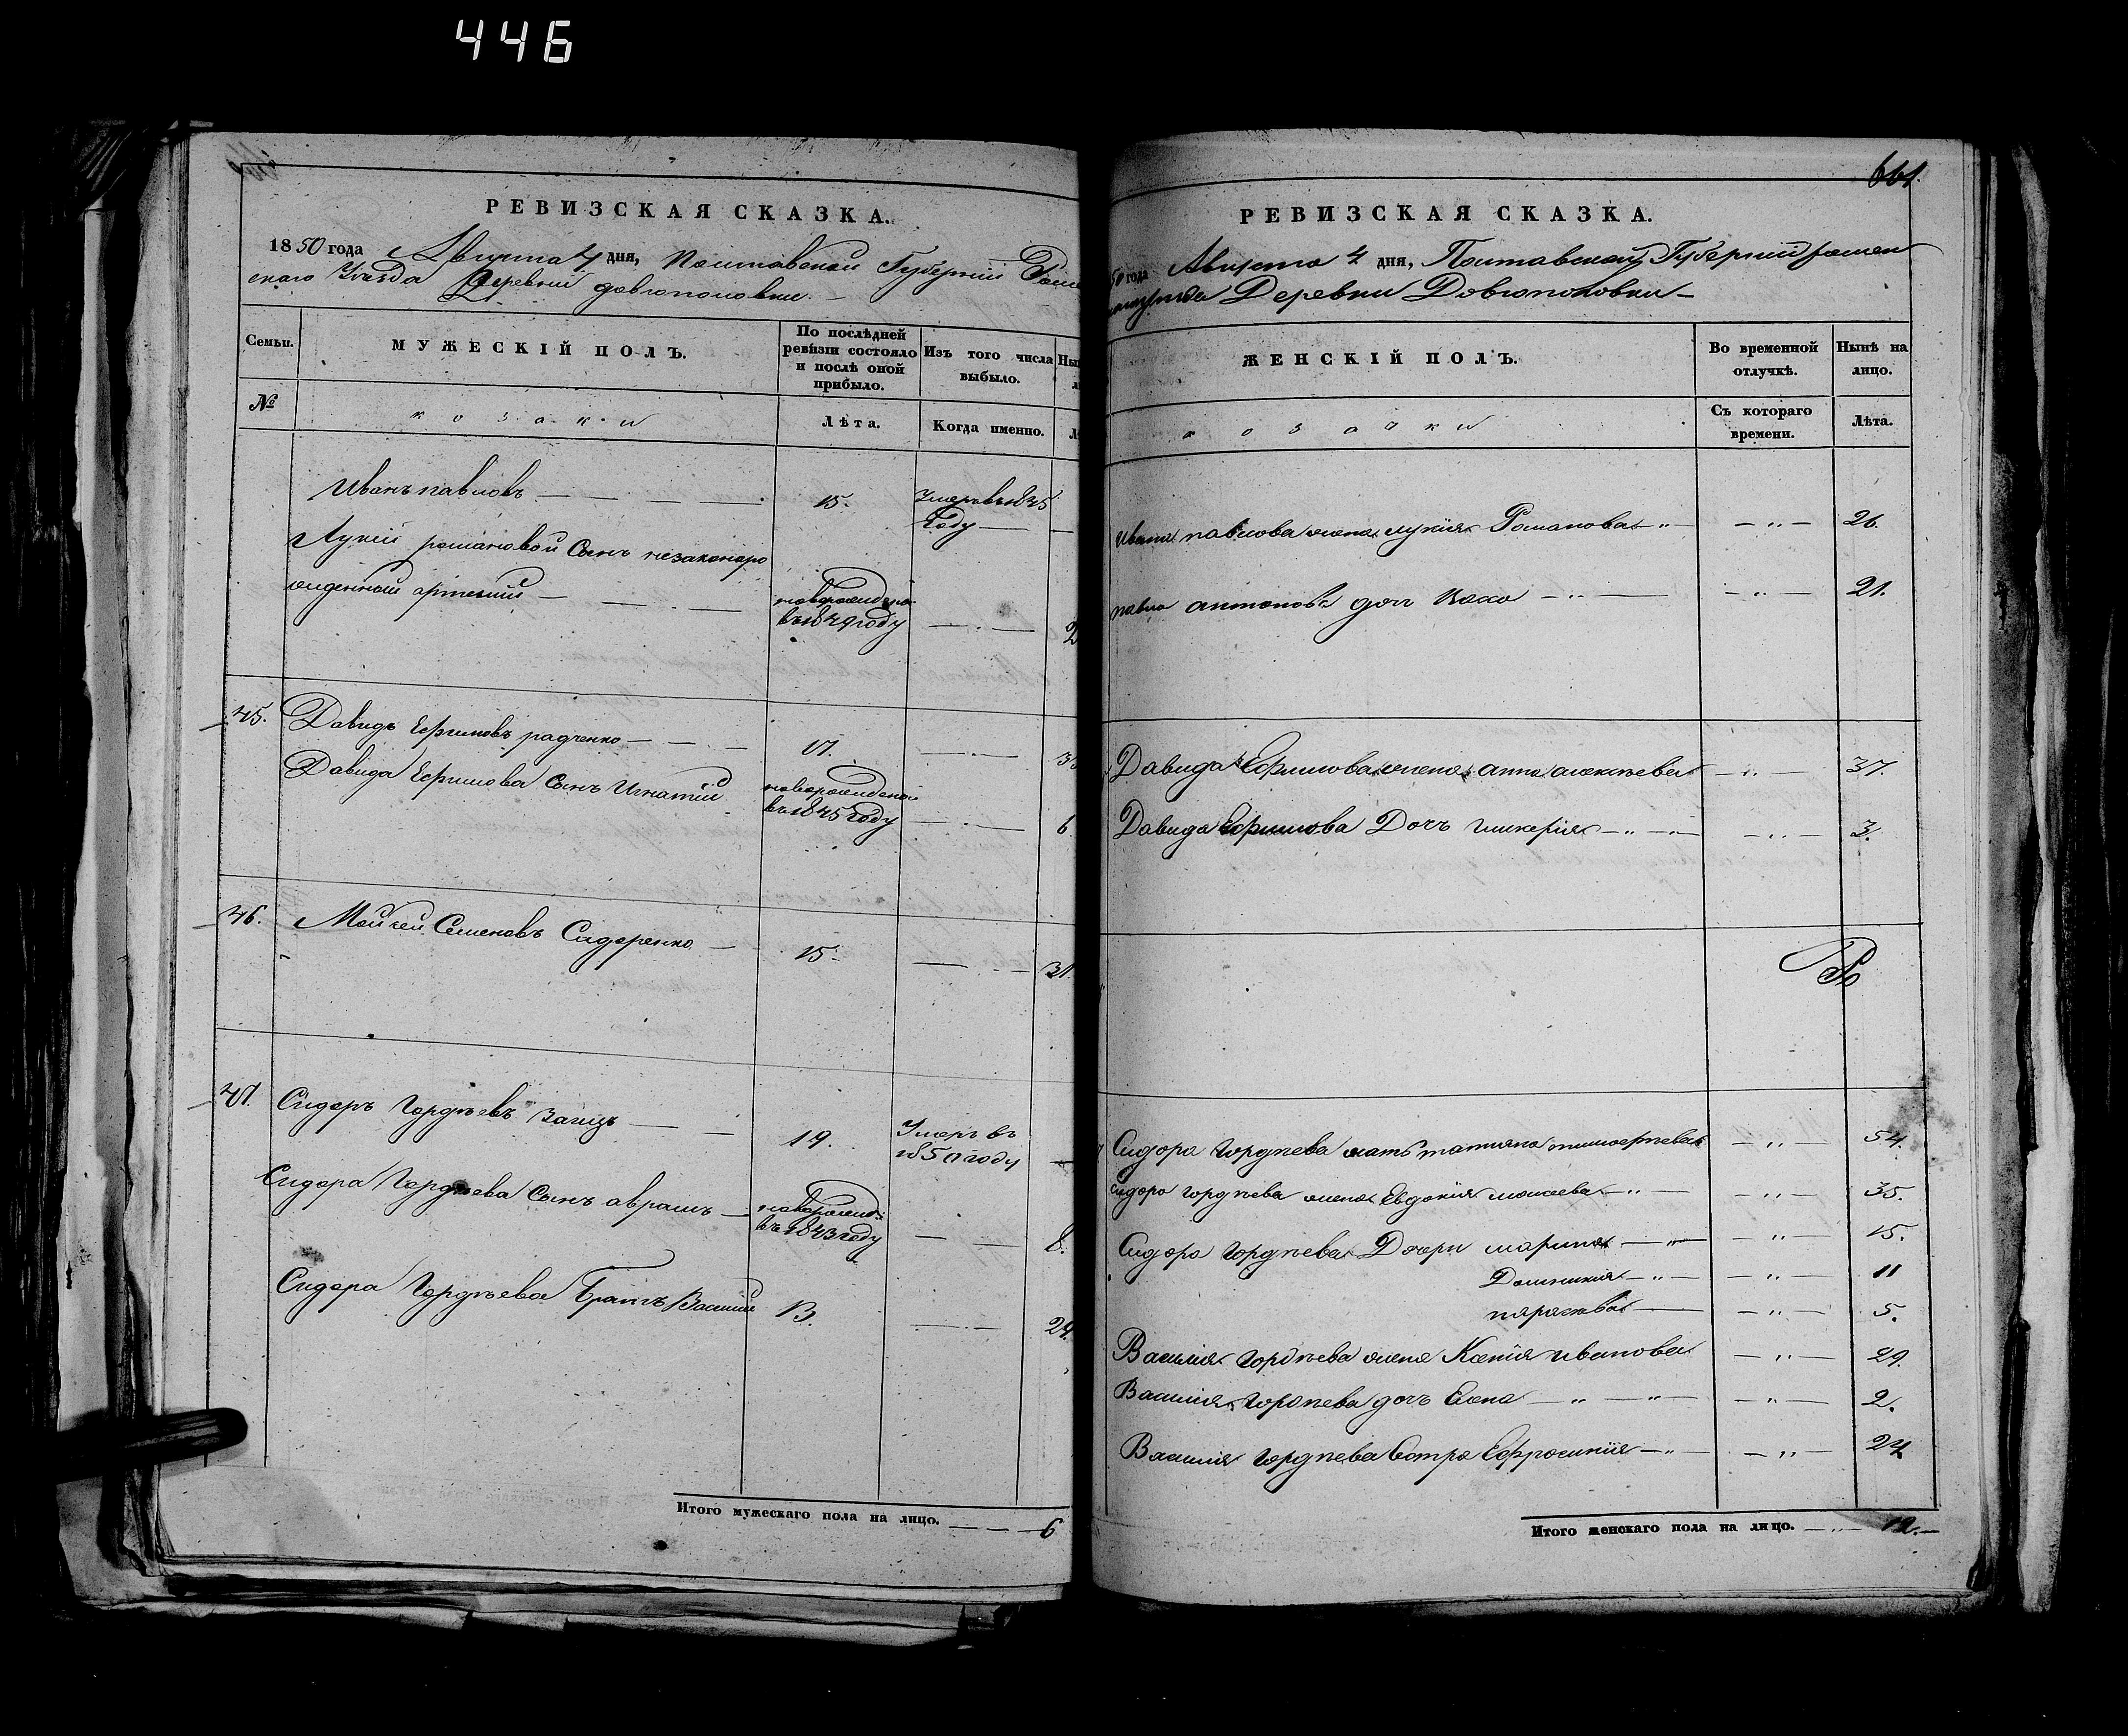 446
РЕВИЗСКАЯ СКАЗКА.
1850 года Августа 4 дня, Полтавской Губерніи Роме
скаго Уѣзда Деревни довгополовки. —
Семьи.
МУЖЕСКІЙ ПОЛЪ.
По послѣдней ревизіи состояло и послѣ оной прибыло.
Изъ того числа выбыло.
№
козаки
Лѣта.
Когда именно.
Иванъ павловъ — 15. Умеръ въ 1845 году —
Лукіи романовой Сынъ незаконоро
жденный артемий — новорожден въ 1849 году — 2
45. Давидъ Ефимовъ радченко — 17. —
Давида Ефимова Сынъ Игнатій новорожденой въ 1845 году — 6
46. Мойсей Семеновъ Сидоренко — 15. — 31.
47. Сидоръ Гордѣевъ Заяцъ — 19. Умеръ въ 1850 году —
Сидора Гордѣева Сынъ аврамъ — новорожд: въ 1843 году — 8.
Сидора Гордѣева Братъ Василий 13. — 24.
Итого мужескаго пола на лицо. — 6
661.
РЕВИЗСКАЯ СКАЗКА.
50 года Августа 4 дня, Полтавской Губерніи ромен
уѣзда Деревни Довгополовки —
ЖЕНСКІЙ ПОЛЪ.
Во временной отлучкѣ.
Нынѣ на лицо.
козачки
Съ котораго времени.
Лѣта.
Ивана павлова жена лукія Романова — 26.
павла антонова доч — 21.
Давида Ефимова жена анна алексѣева — 37.
Давида Ефимова Дочь гликерія — 3.
Сидора гордѣева мать татяна тимофѣева — 54.
Сидора гордѣева жена Евдокія моисеева — 35.
Сидора гордѣева Дочери марина — 15.
Домникия — 11
параскева — 5.
Василия гордѣева жена Ксенія иванова — 29.
Василия гордѣева дочь Елена — 2.
Василия гордѣева Сестра Ефросинія — 24
Итого женскаго пола на лицо. — 12. —